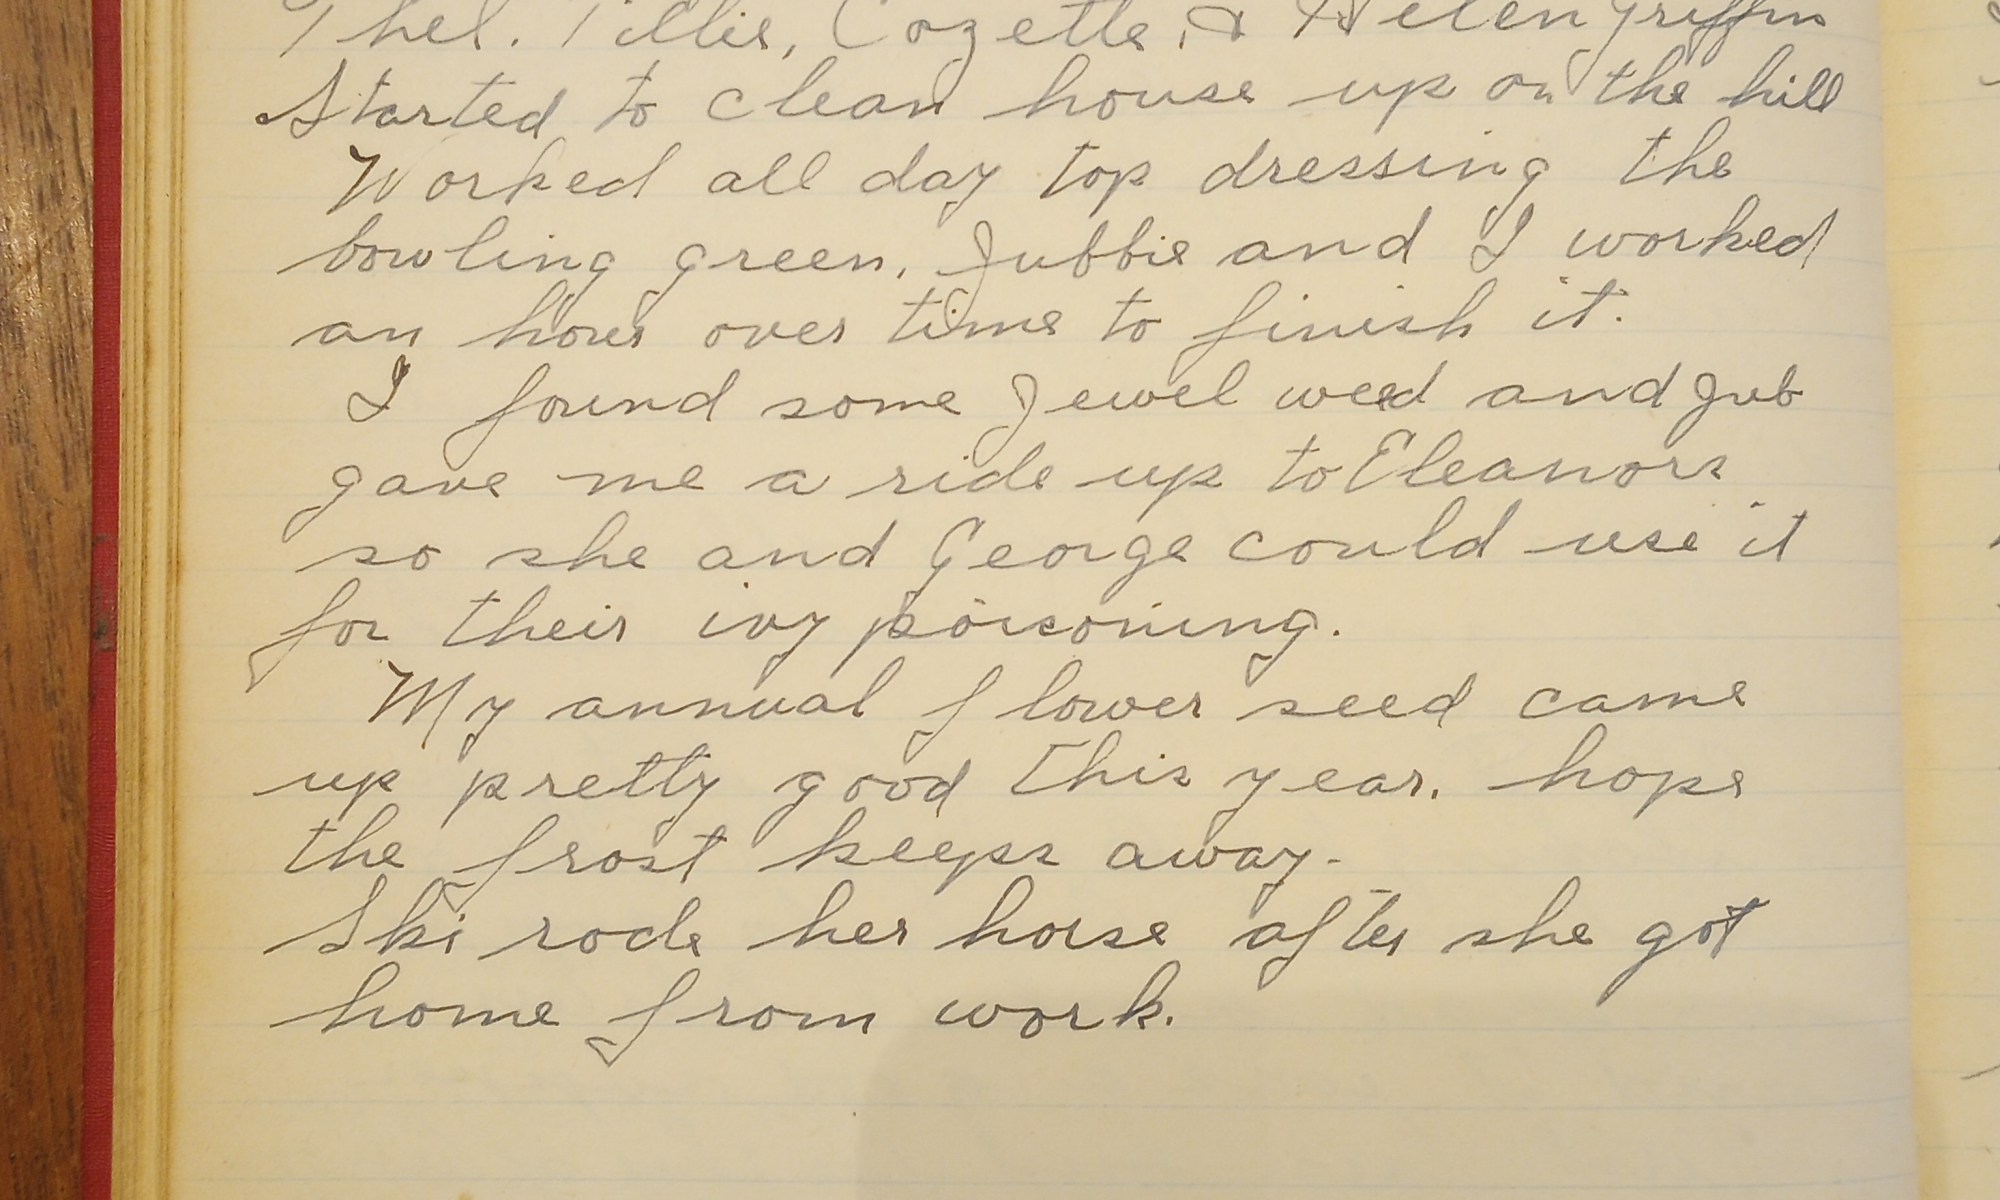 Thel. Tillie, Cozette, & Helen Griffin
Started to clean house up on the hill
Worked all day top dressing the
bowling green. Jubbie and I worked
an hour over time to finish it.
I found some Jewel weed and Jub
gave me a ride up to Eleanors
so she and George could use it
for their ivy poisoning.
My annual flower seed came
up pretty good this year. hope
the frost keeps away.
Ski rode her horse after she got
home from work.